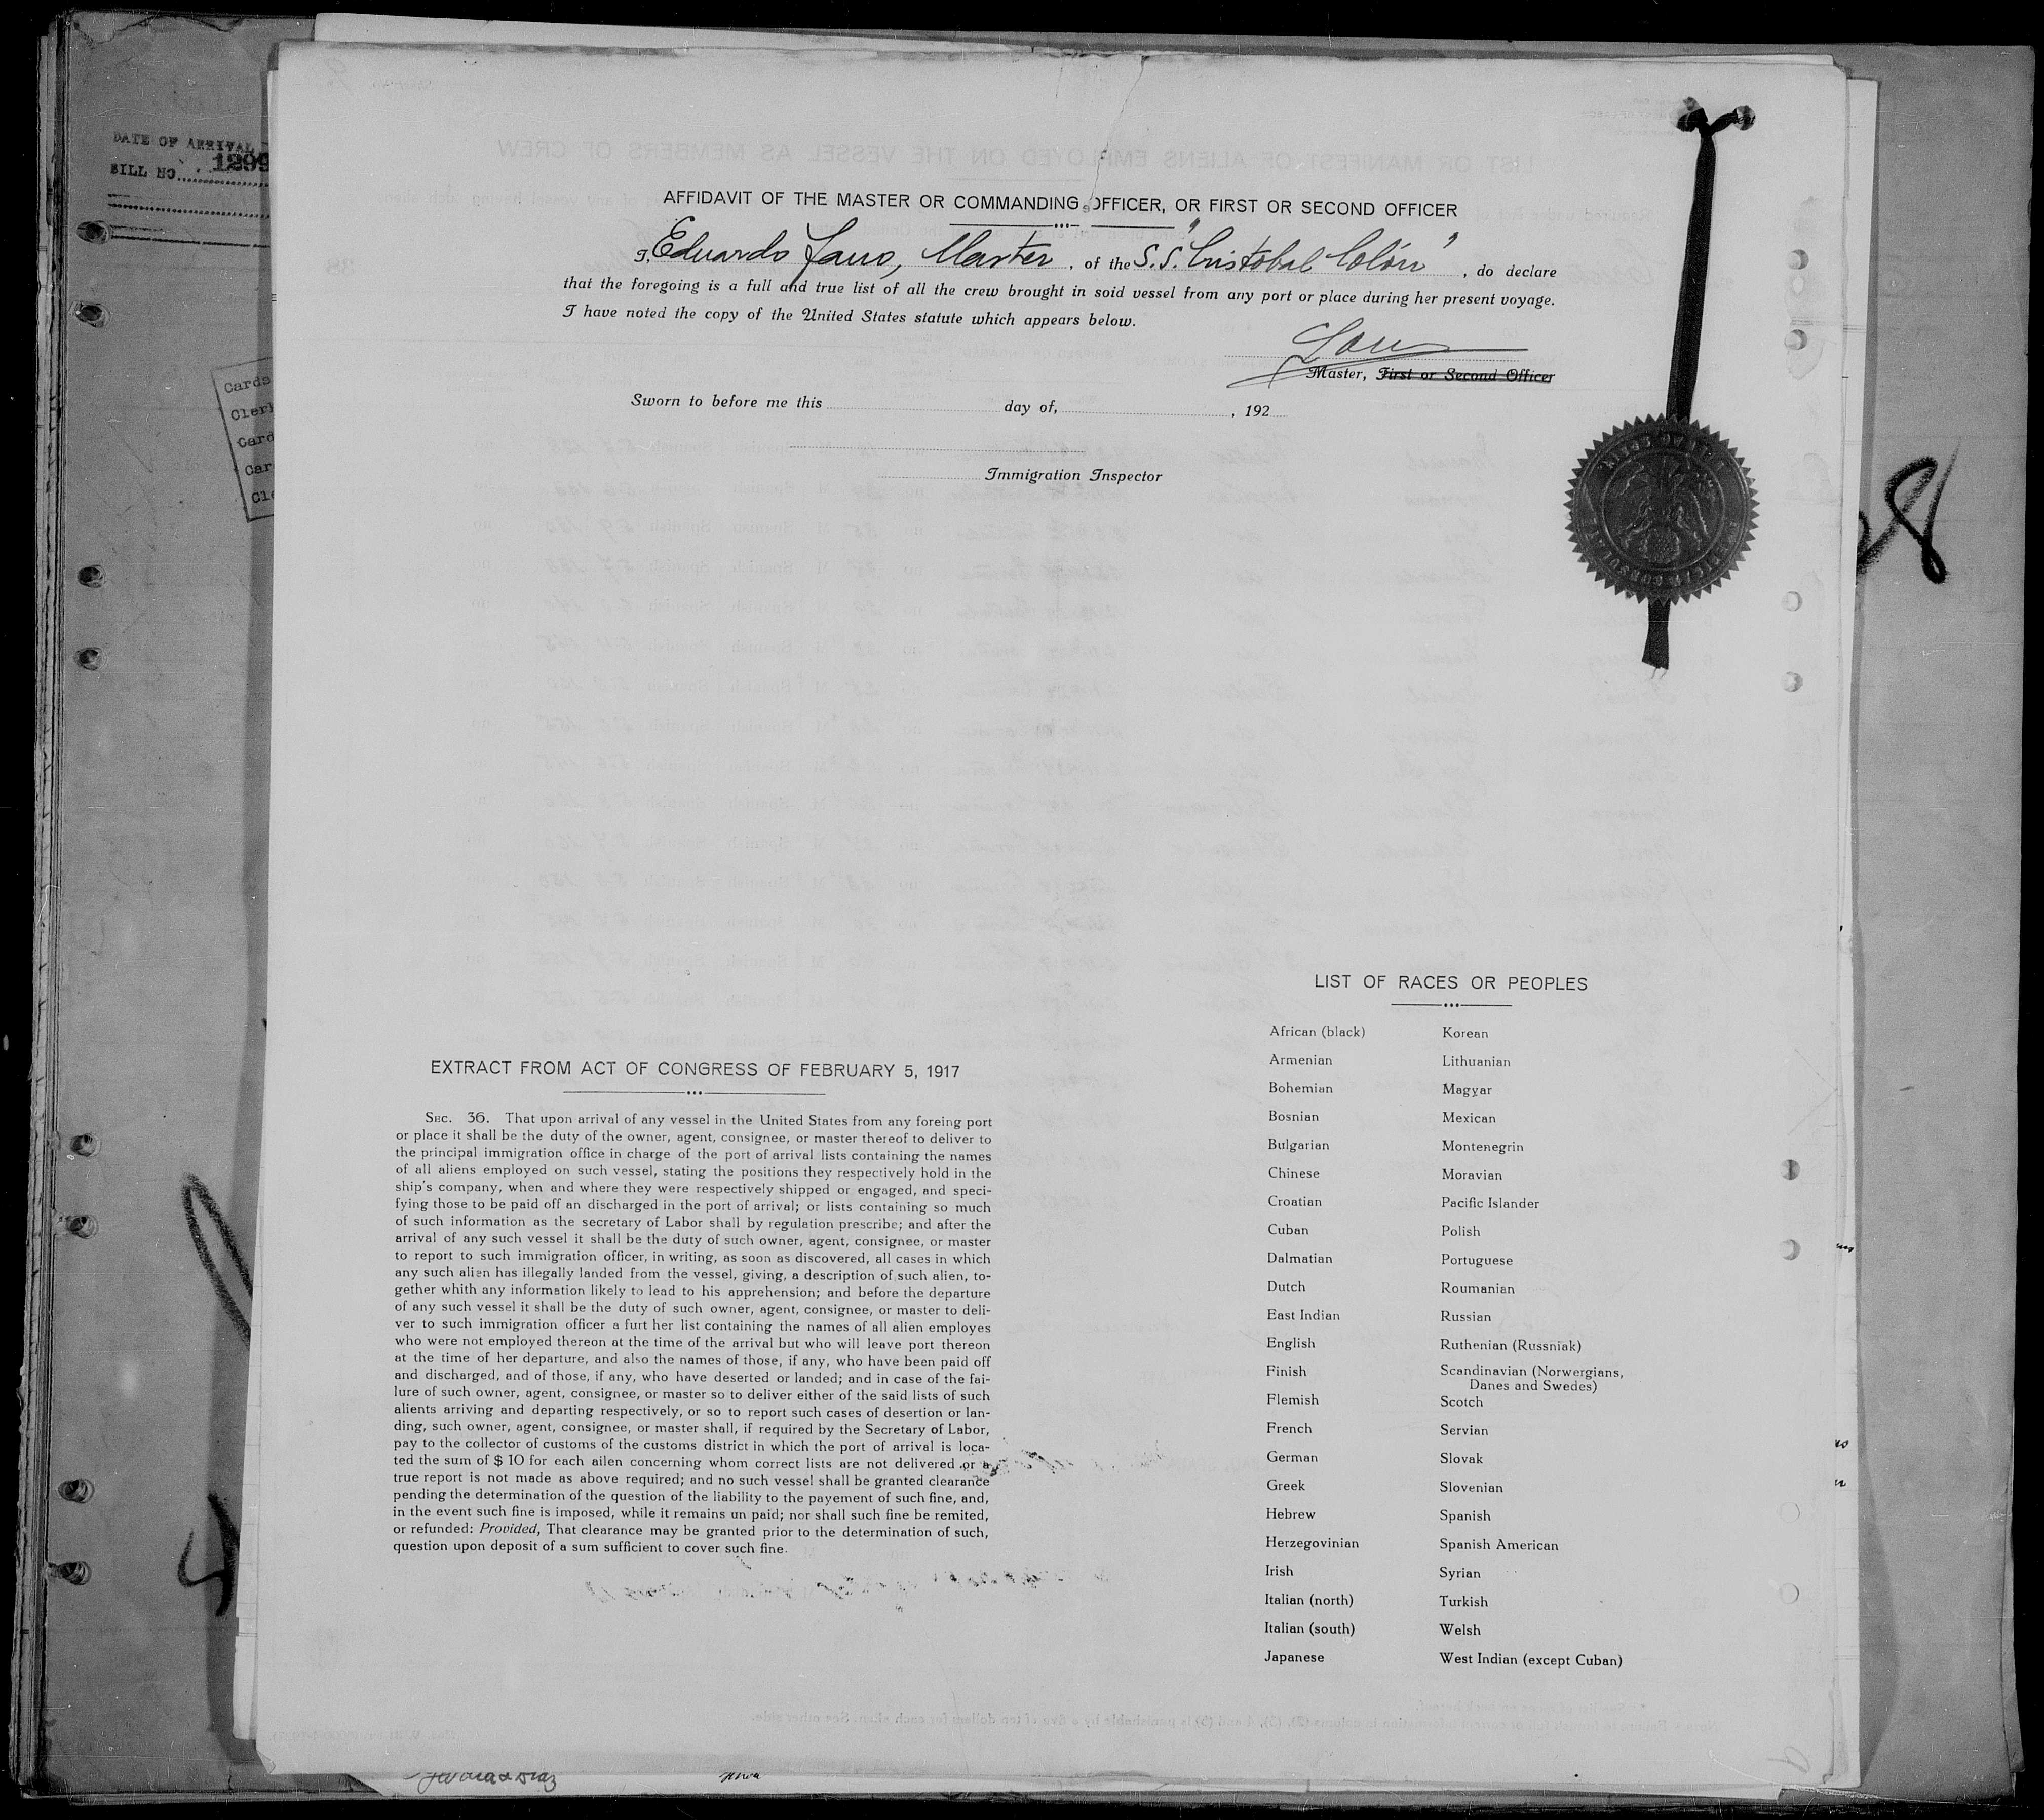 DATE OF ARRIVAL
BILL NO. 1299
Cards
Clerk
Card
Car
Cle
AFFIDAVIT OF THE MASTER OR COMMANDING OFFICER, OR FIRST OR SECOND OFFICER
I, Eduardo Fano, Master, of the S.S. "Cristobal Colón", do declare
that the foregoing is a full and true list of all the crew brought in soid vessel from any port or place during her present voyage.
I have noted the copy of the United States statute which appears below.
Fano
Master, First or Second Officer
Sworn to before me this day of, , 192
Immigration Inspector
28
EXTRACT FROM ACT OF CONGRESS OF FEBRUARY 5, 1917
SEC. 36. That upon arrival of any vessel in the United States from any foreing port
or place it shall be the duty of the owner, agent, consignee, or master thereof to deliver to
the principal immigration office in charge of the port of arrival lists containing the names
of all aliens employed on such vessel, stating the positions they respectively hold in the
ship's company, when and where they were respectively shipped or engaged, and speci-
fying those to be paid off an discharged in the port of arrival; or lists containing so much
of such information as the secretary of Labor shall by regulation prescribe; and after the
arrival of any such vessel it shall be the duty of such owner, agent, consignee, or master
to report to such immigration officer, in writing, as soon as discovered, all cases in which
any such alien has illegally landed from the vessel, giving, a description of such alien, to-
gether whith any information likely to lead to his apprehension; and before the departure
of any such vessel it shall be the duty of such owner, agent, consignee, or master to deli-
ver to such immigration officer a furt her list containing the names of all alien employes
who were not employed thereon at the time of the arrival but who will leave port thereon
at the time of her departure, and also the names of those, if any, who have been paid off
and discharged, and of those, if any, who have deserted or landed; and in case of the fai-
lure of such owner, agent, consignee, or master so to deliver either of the said lists of such
alients arriving and departing respectively, or so to report such cases of desertion or lan-
ding, such owner, agent, consignee, or master shall, if required by the Secretary of Labor,
pay to the collector of customs of the customs district in which the port of arrival is loca-
ted the sum of $ 10 for each ailen concerning whom correct lists are not delivered or a
true report is not made as above required; and no such vessel shall be granted clearance
pending the determination of the question of the liability to the payement of such fine, and,
in the event such fine is imposed, while it remains un paid; nor shall such fine be remited,
or refunded: Provided, That clearance may be granted prior to the determination of such,
question upon deposit of a sum sufficient to cover such fine.
LIST OF RACES OR PEOPLES
African (black)
Armenian
Bohemian
Bosnian
Bulgarian
Chinese
Croatian
Cuban
Dalmatian
Dutch
East Indian
English
Finish
Flemish
French
German
Greek
Hebrew
Herzegovinian
Irish
Italian (north)
Italian (south)
Japanese
Korean
Lithuanian
Magyar
Mexican
Montenegrin
Moravian
Pacific Islander
Polish
Portuguese
Roumanian
Russian
Ruthenian (Russniak)
Scandinavian (Norwergians,
Danes and Swedes)
Scotch
Servian
Slovak
Slovenian
Spanish
Spanish American
Syrian
Turkish
Welsh
West Indian (except Cuban)